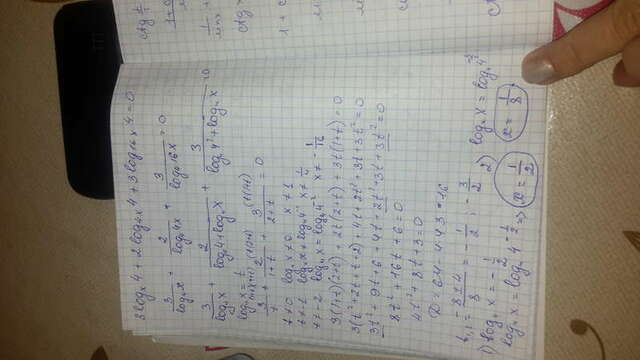 3log_x 4 + 2log_{4x} 4 + 3log_{16x} 4 = 0
3/log₄x + 2/log₄4x + 3/log₄16x = 0
3/log₄x + 2/(log₄4 + log₄x) + 3/(log4² + log₄x) = 0
3/t + 2/(1+t) + 3/(2+t) = 0
t≠0 log₄x≠0 x≠1
t≠-1
t≠-2 x≠1/16
3(1+t)(2+t) + 2t(2+t) + 3t(1+t) = 0
3(t²+2t+t+2) + 4t + 2t² + 3t + 3t² = 0
3t² + 9t + 6 + 4t + 2t² + 3t + 3t² = 0
8t² + 16t + 6 = 0
4t² + 8t + 3 = 0
D = 64 - 4·4·3 = 16
t₁,₂ = (-8±4)/8 = -1/2; -3/2
1) log₄x = -1/2
log₄x = log₄4^{-1/2} => x = 1/2
2) log₄x = log₄4
x = 1/8